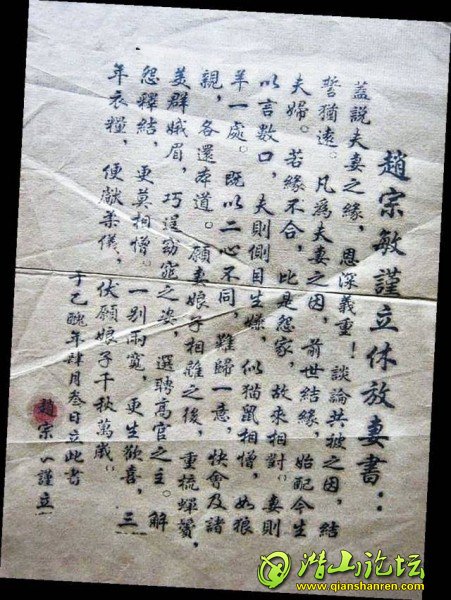 趙宗敏謹立休放妻書：
蓋說夫妻之緣，恩深義重！談論共被之因，結
誓猶遠。凡為夫妻之因，前世結緣，始配今生
夫婦。若緣不合，比是怨家，故來相對。妻則
以言數口，夫則側目生嫌，似猫鼠相憎，如狼
羊一處。既以二心不同，難歸一意，快會及諸
親，各還本道。願妻娘子相離之後，重梳蟬鬢，
美群娥眉，巧逞窈窕之姿，選聘高官之主。解
怨釋結，更莫相憎。一別兩寬，更生歡喜，三
年衣糧，便獻柔儀，伏願娘子千秋萬歲。
于乙醜年肆月叁日立此書
趙宗 謹立
潛山论坛
www.qianshanren.com